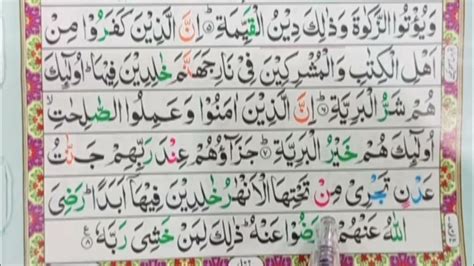 وَيُؤْتُوا الزَّكٰوةَ وَذٰلِكَ دِيْنُ الْقَيِّمَةِ ۝۵ اِنَّ الَّذِيْنَ كَفَرُوْا مِنْ
اَهْلِ الْكِتٰبِ وَالْمُشْرِكِيْنَ فِيْ نَارِ جَهَنَّمَ خٰلِدِيْنَ فِيْهَا ؕ اُولٰٓئِكَ
هُمْ شَرُّ الْبَرِيَّةِ ۝۶ اِنَّ الَّذِيْنَ اٰمَنُوْا وَعَمِلُوا الصّٰلِحٰتِ ۙ
اُولٰٓئِكَ هُمْ خَيْرُ الْبَرِيَّةِ ۝۷ جَزَآؤُهُمْ عِنْدَ رَبِّهِمْ جَنّٰتُ
عَدْنٍ تَجْرِيْ مِنْ تَحْتِهَا الْاَنْهٰرُ خٰلِدِيْنَ فِيْهَآ اَبَدًا ؕ رَضِيَ
اللّٰهُ عَنْهُمْ وَرَضُوْا عَنْهُ ؕ ذٰلِكَ لِمَنْ خَشِيَ رَبَّهٗ ۝۸